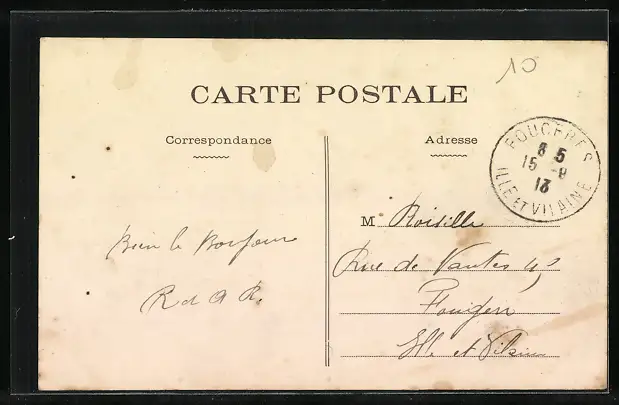 10
CARTE POSTALE
Correspondance
Adresse
FOUGERES
8 5
15 -9
13
ILLE ET VILAINE
M Roisille
Rue de Nantes 45
Fougeres
Ille et Vilaine
Bien le Bonjour
R d A R.